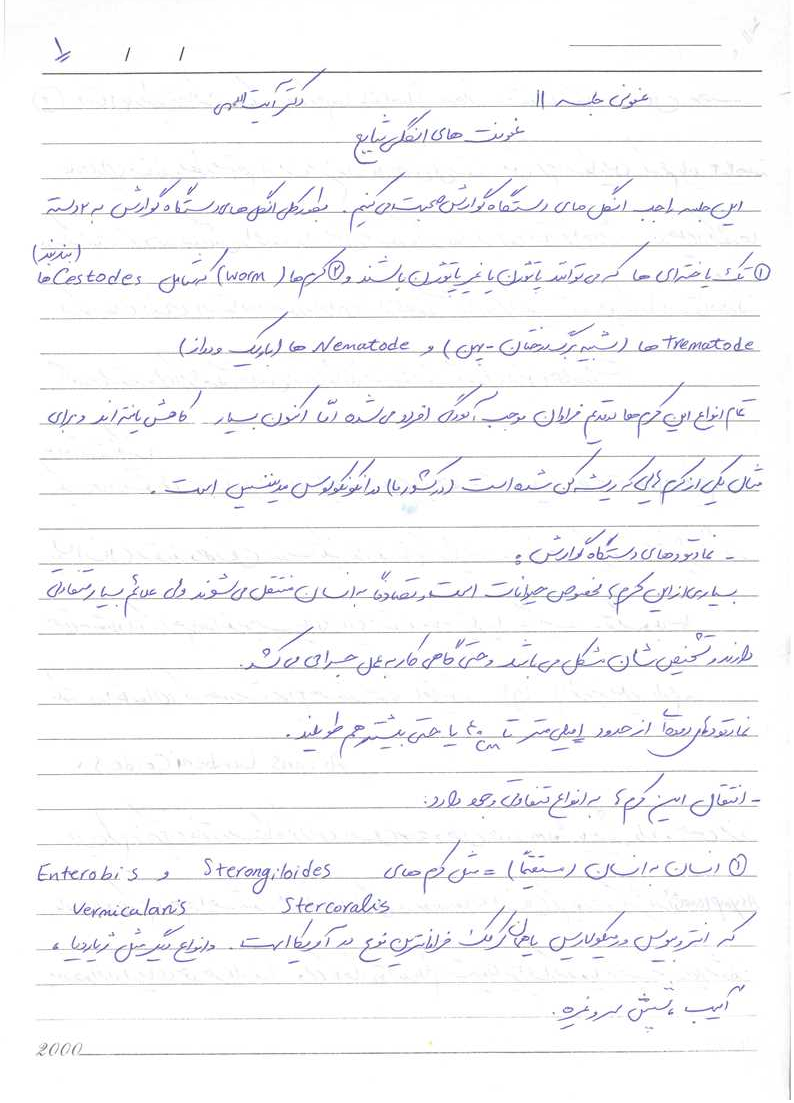 / /
عفونی جلسه ۱۱ دکتر آیت اللهی
عفونت های انگلی شایع
این جلسه راجب انگل های دستگاه گوارش صحبت می کنیم. بطور کلی انگل های دستگاه گوارش به ۲ دسته
(بندبند)
① تک یاخته ای ها که می توانند پاتوژن یا غیر پاتوژن باشند و ② کرم ها (worm) که شامل Cestodes ها
Trematode ها (شبیه برگ درختان - پهن) و Nematode ها (باریک و دراز)
تمام انواع این کرم ها در قدیم فراوان موجب آلودگی افراد می شده امّا اکنون بسیار کاهش یافته اند و برای
مثال یکی از کرم هایی که ریشه کن شده است (در کشور ما) دراکونکولوس مدیننسیس است.
- نماتودهای دستگاه گوارش:
بسیاری از این کرم ها مخصوص حیوانات است و تصادفاً به انسان منتقل می شوند ولی علائم بسیار متفاوتی
دارند و تشخیص شان مشکل می باشد و حتّی گاهی کار به عمل جراحی می کشد.
نماتودهای از حدود ۱ میلی متر تا ۴۰ cm یا حتی بیشتر هم طویلند.
- انتقال این کرم ها به انواع متفاوتی وجود دارد:
① انسان به انسان (مستقیماً) = مثل کرم های Sterongiloides و Enterobis
Stercoralis Vermicularis
که انتروبیوس ورمیکولاریس یا همان کرمک فراوانترین نوع در آمریکا است. و انواع دیگر مثل ژیاردیا،
آمیب، شپش سر و غیره.
2000